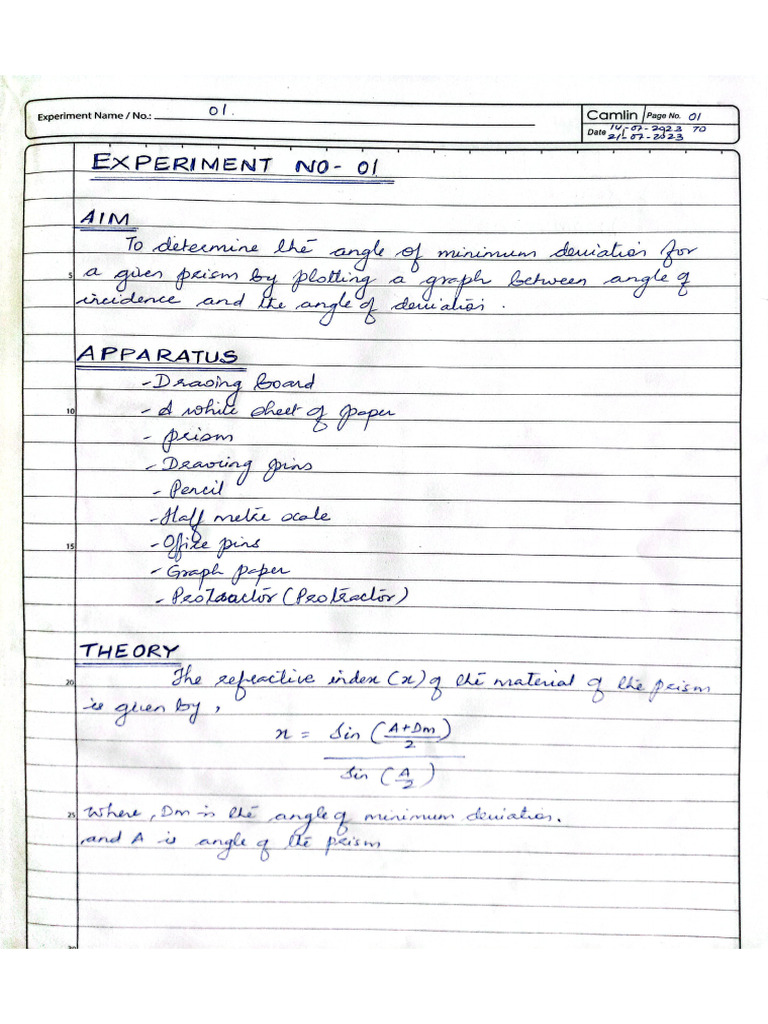 Experiment Name / No.: 01.
Camlin Page No. 01
Date 14-07-2023 TO
21-07-2023
EXPERIMENT NO- 01
AIM
To determine the angle of minimum deviation for
5 a given prism by plotting a graph between angle of
incidence and the angle of deviation.
APPARATUS
- Drawing board
10 - A white sheet of paper
- prism
- Drawing pins
- Pencil
- Half metre scale
15 - Office pins
- Graph paper
- Protractor (Protractor)
THEORY
20 The refractive index (n) of the material of the prism
is given by,
n = Sin (A+Dm/2)
Sin (A/2)
25 Where, Dm is the angle of minimum deviation.
and A is angle of the prism
30